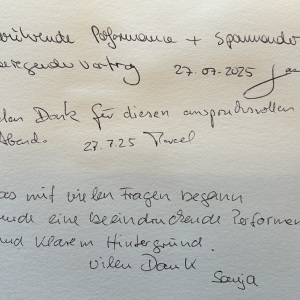 ührende Performance + Spannender
regender Vortrag 27.07.2025
len Dank für diesen anspruchsvollen
Abend. 27.7.25 Marcel
as mit vielen Fragen begann
urde eine beeindruckende Performan
und klarem Hintergrund.
vilen Dank
Sonja